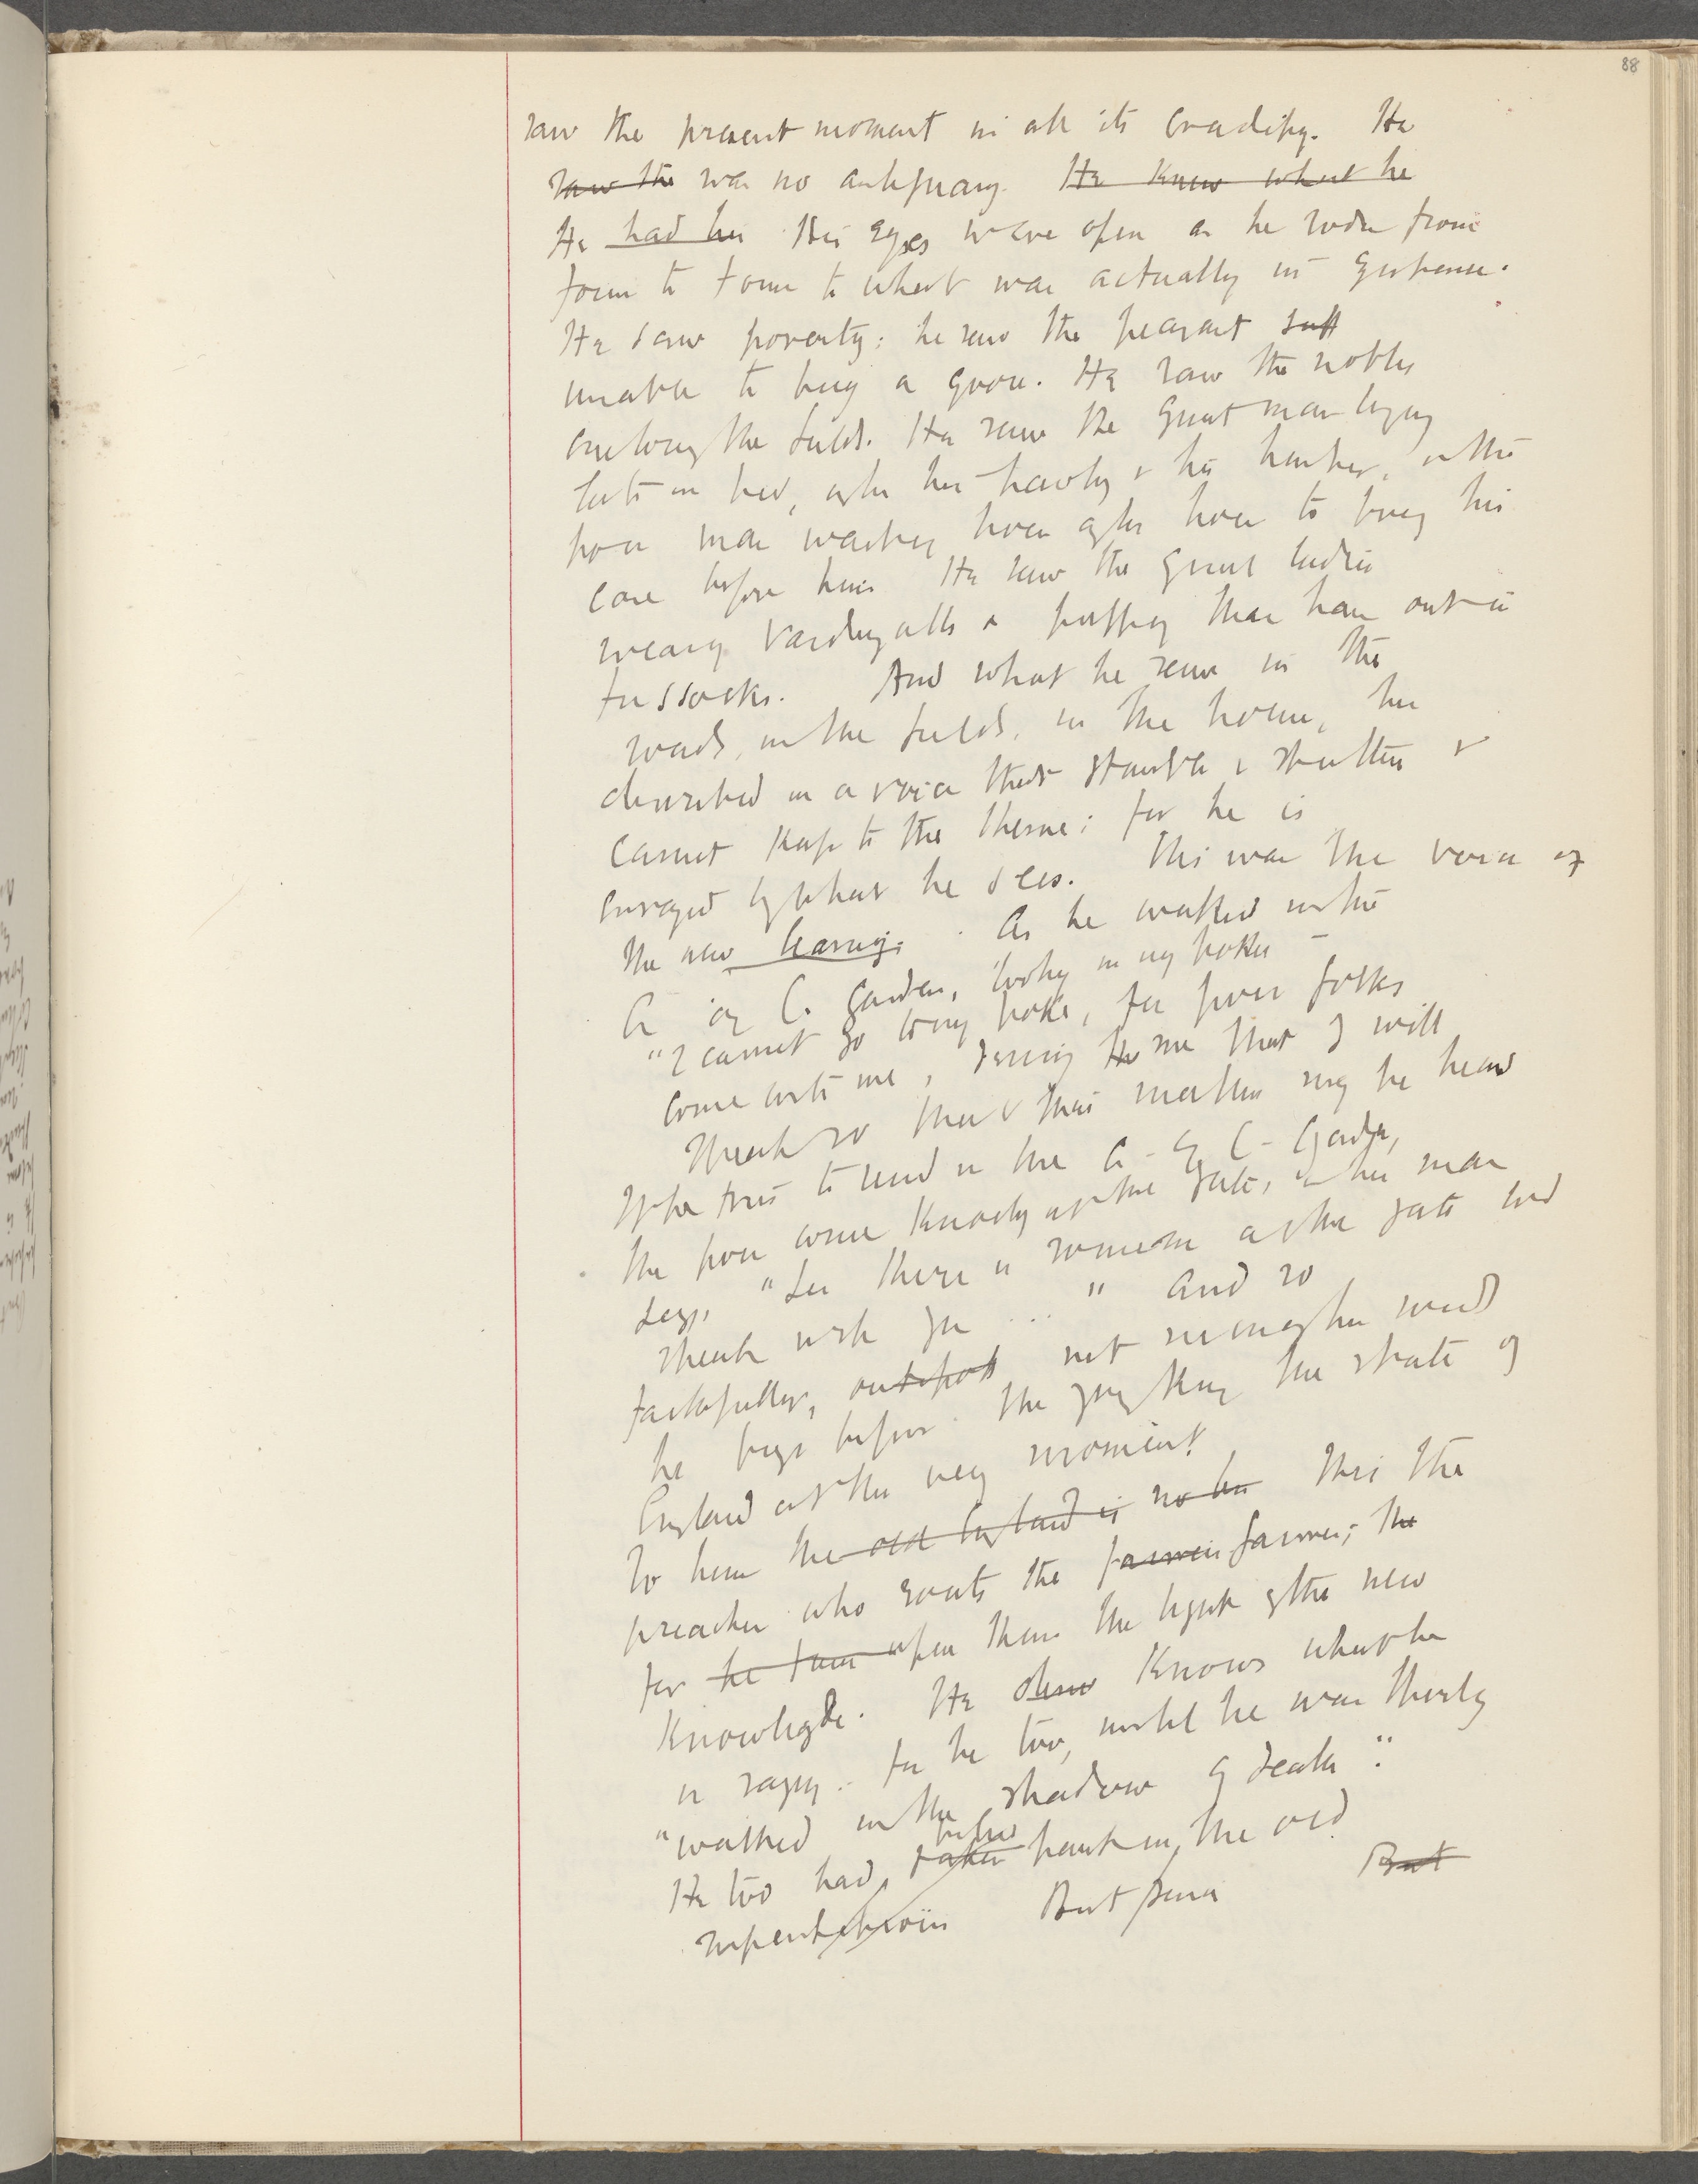 88
saw the present moment in all its crudity. He
saw the was no antiquary. He knew what he
He had his His eyes were open as he rode from
town to town to what was actually in existence.
He saw poverty: he saw the peasant suff
unable to buy a goose. He saw the nobles
enclosing the fields. He saw the great man lying
late in bed, after his hawking & his hunting, & the
poor man waiting hour after hour to bring his
case before him. He saw the great ladies
wearing vardingalls & puffing their hair out in
tussocks. And what he saw in the
roads, in the fields, in the house, he
described in a voice that stumbles & stutters &
cannot keep to the theme; for he is
enraged by what he sees. This was the voice of
the new learning. As he walked in the
A of C. garden, looking in my book
"I cannot go to my book, for poor folks
come unto me, desiring me that I will
speak so that their matters may be heard
When he tries to read in the A. of C. Garden,
the poor come knocking at the gate, & his man
says, "Sir there is someone at the gate wd
speak with you ..." And so
faithfully, outspok not mincing his words
he lays before the young King the state of
England at the very moment.
To him the old England is no lon This the
preacher who routs the farmer farmers; the
for he turn upon them the light of the new
knowledge. He shows knows what he
is saying. For he too, until he was thirty
"walked in the shadow of death".
He too had taken part in, the old
superstitions But since But